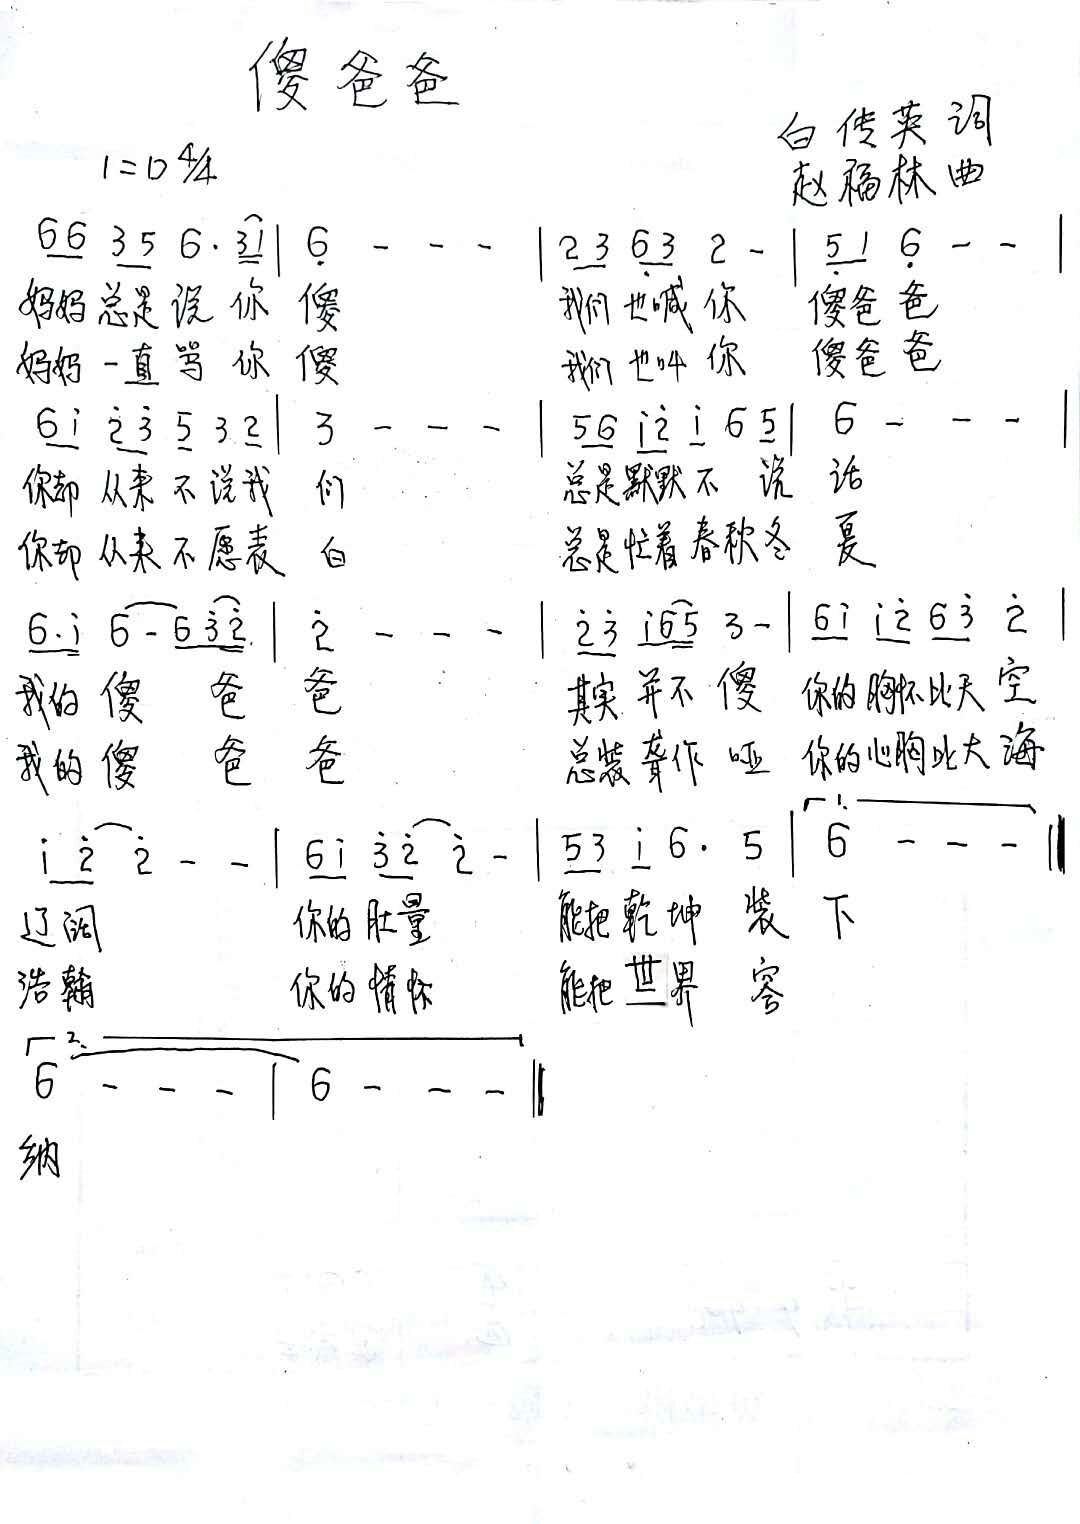 傻爸爸
白传英词
1=D 4/4
赵福林曲
66 35 6· 31 | 6 - - - | 23 63 2 - | 51 6 - - |
妈妈总是说你傻 我们也喊你 傻爸爸
妈妈一直骂你傻 我们也叫你 傻爸爸
61 23 5 3 2 | 3 - - - | 56 12 1 6 5 | 6 - - - |
你却从来不说我们 总是默默不说话
你却从来不愿表白 总是忙着春秋冬夏
6·1 6 - 632 | 2 - - - | 23 165 3 - | 61 12 63 2 |
我的傻爸爸 其实并不傻 你的胸怀比天空
我的傻爸爸 总装聋作哑 你的心胸比大海
1 2 2 - - | 61 32 2 - | 53 1 6· 5 | 1. 6 - - - ‖
辽阔 你的肚量 能把乾坤装下
浩瀚 你的情怀 能把世界容
2. 6 - - - | 6 - - - ‖
纳